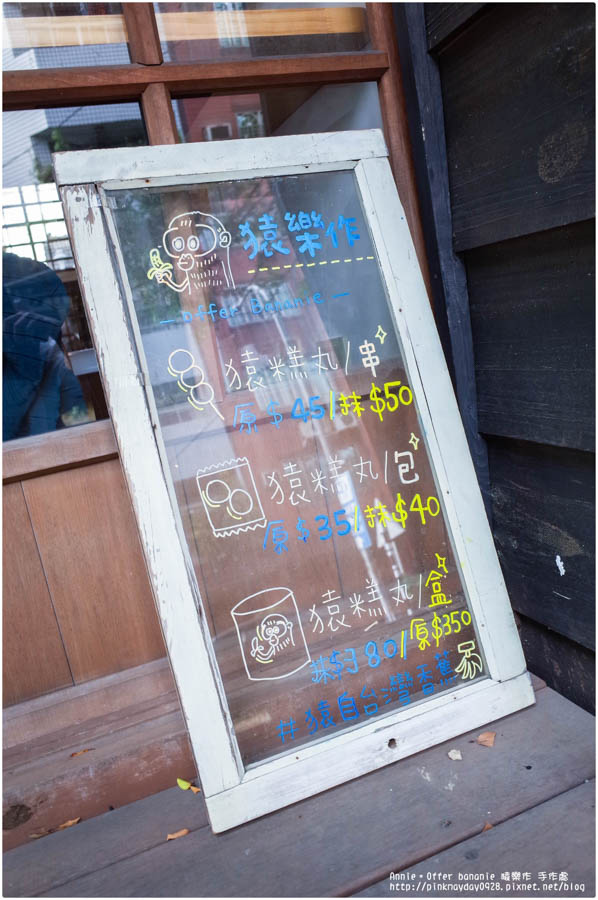 猿樂作
— Offer Bananie —
猿糕丸/串
原$45/抹$50
猿糕丸/包
原$35/抹$40
猿糕丸/盒
抹$380/原$350
#猿自台灣香蕉
Annie。Offer bananie 猿樂作 手作處
http://pinkmayday0928.pixnet.net/blog